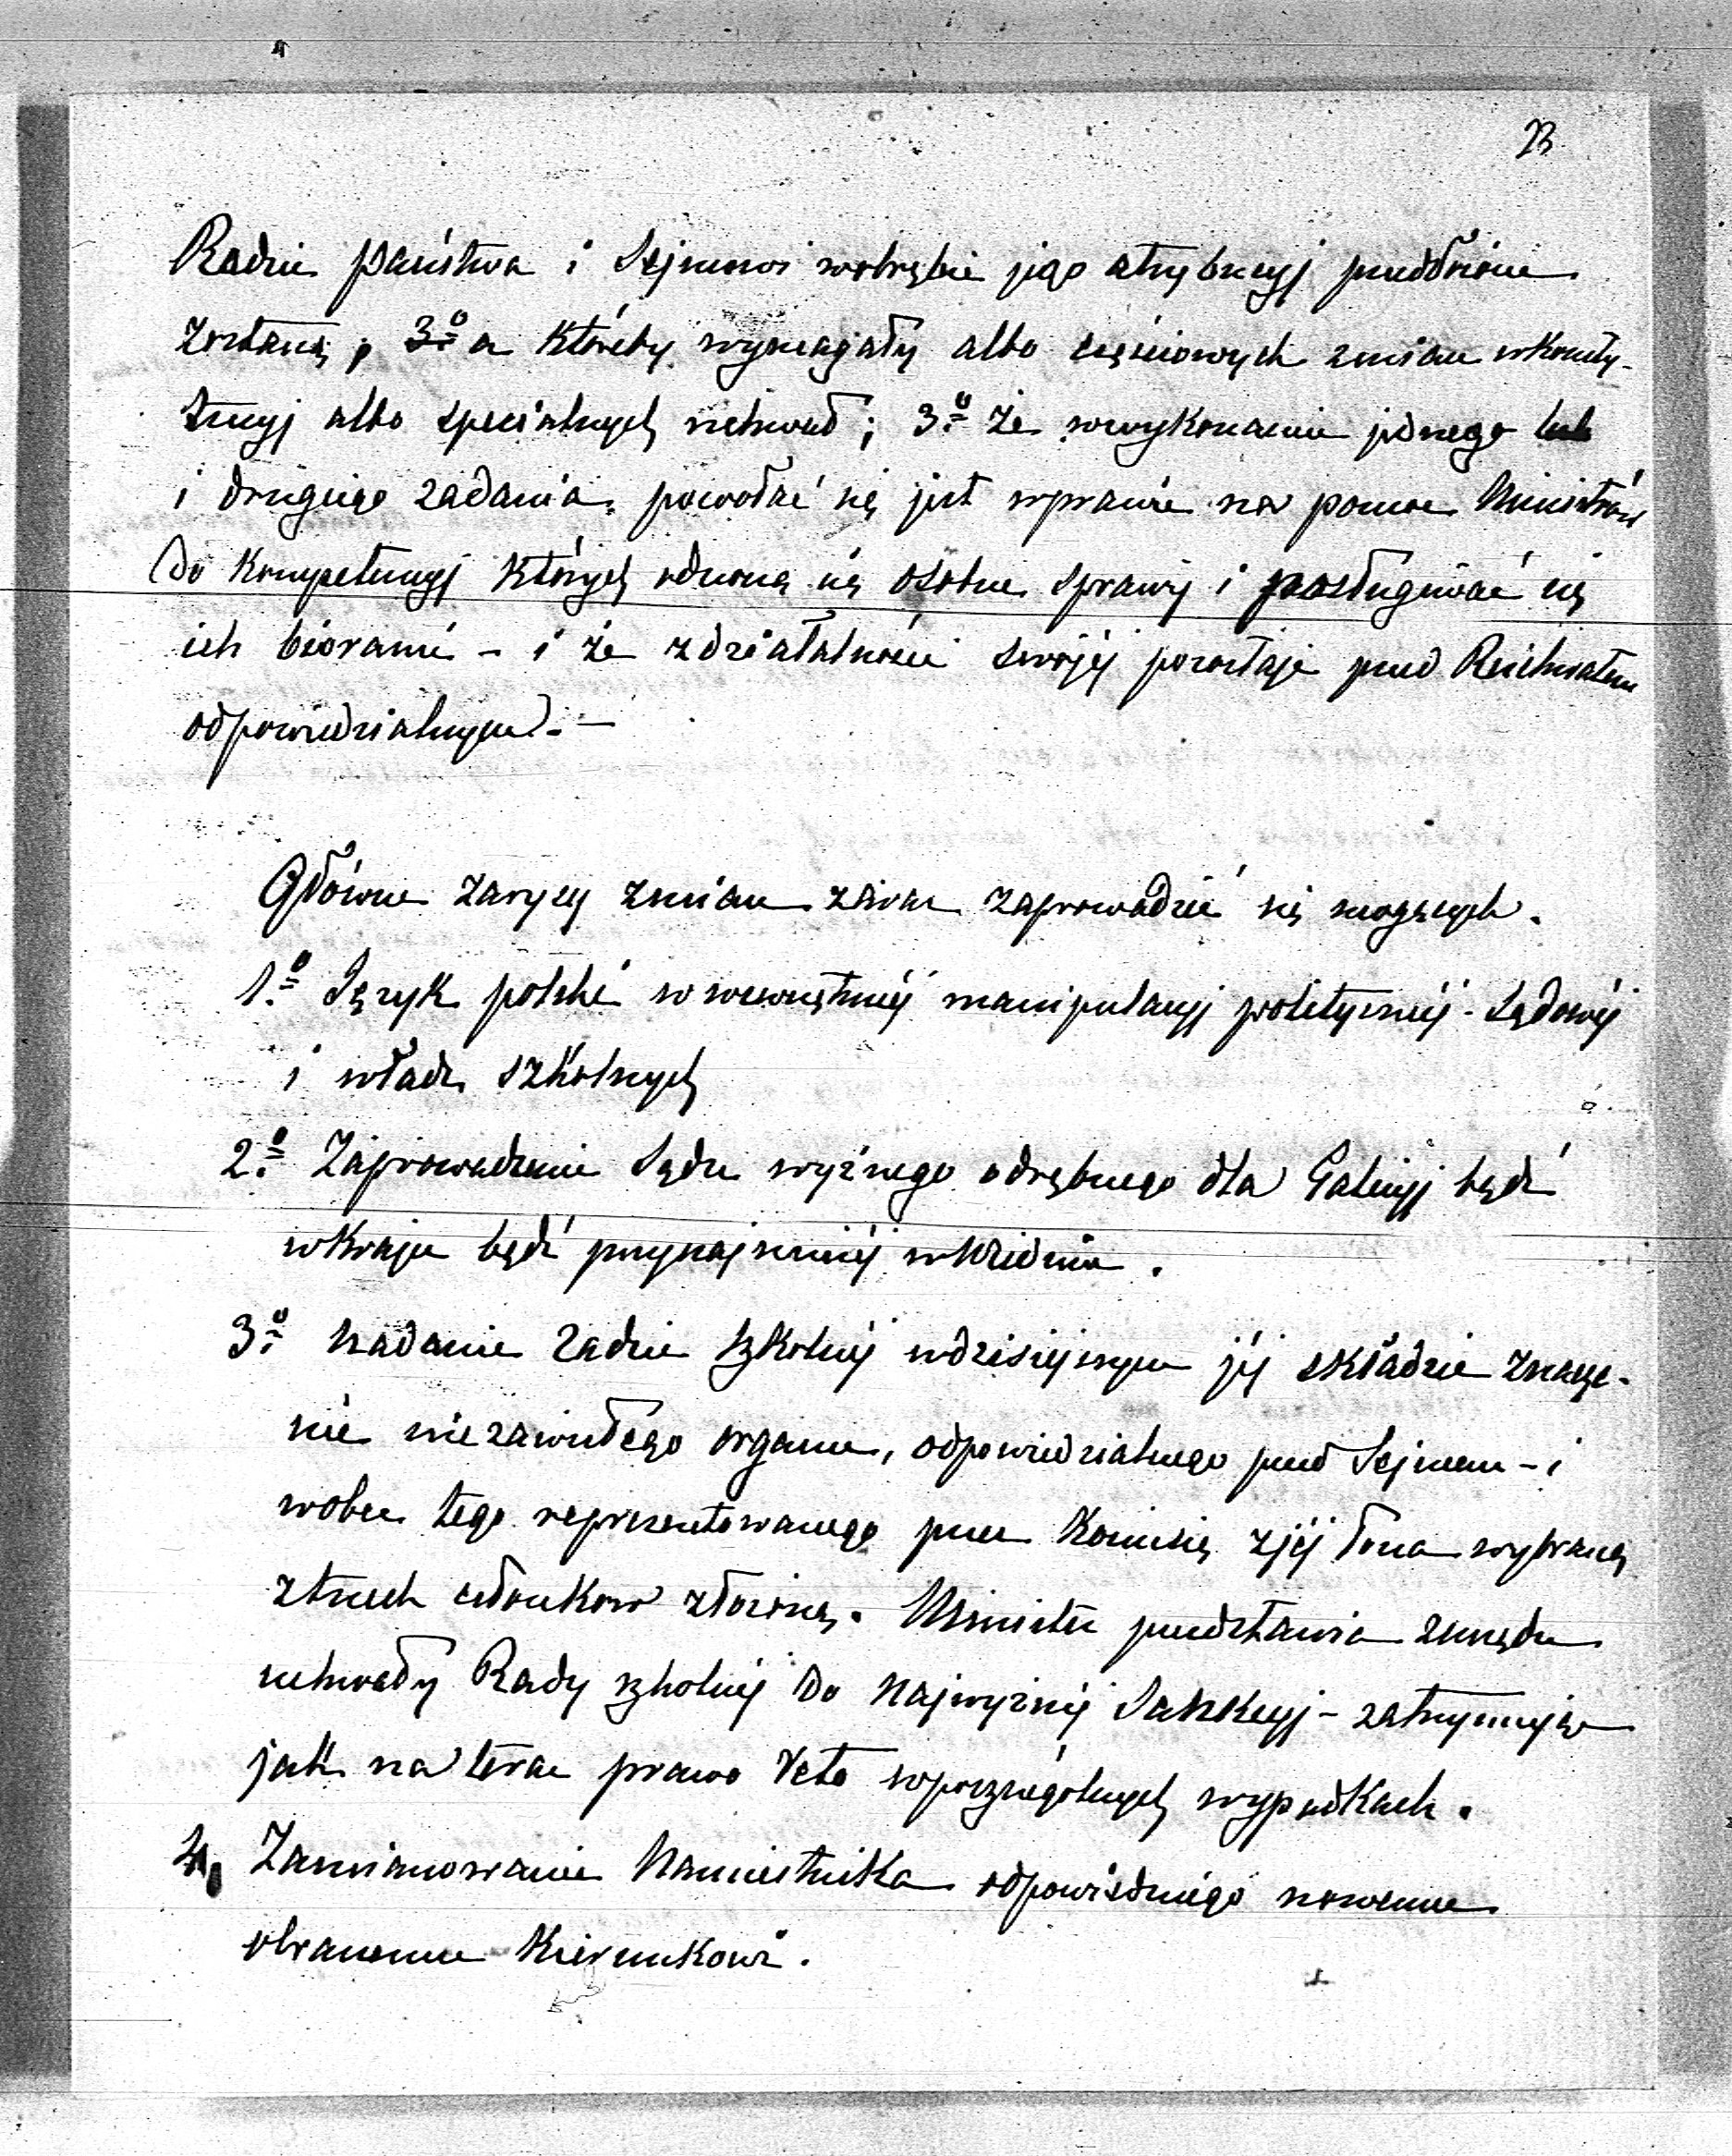 23
Radzie państwa i Sejmowi w obrębie jego atrybucyj przedłożone
zostaną, 3º a któreby wymagały albo częściowych zmian w konsty-
tucyj albo specialnych uchwał; 3º że w wykonaniu jednego lub
i drugiego zadania, powołać się jest w prawie na pomoc Ministrów
do Kompetencyj których odnoszą się osobne sprawy i posługiwać się
ich biórami – i że z działalności swojéj pozostaje przed Reichsratem
odpowiedzialnym). –
Główne zarysy zmian zaraz zaprowadzić się mogących.
1º Język polski w wewnętrznéj manipulacyj politycznéj - Sądowéj
i władz szkolnych
2º Zaprowadzenie Sądu wyższego odrębnego dla Galicyj bądź
w kraju bądź przynajmniéj w Wiedniu.
3º Nadanie Radzie szkolnéj w dzisiejszym jéj składzie znacze-
nie niezawisłego organu, odpowiedzialnego przed Sejmem - i
wobec tego reprezentowanego przez Komisię z jéj łona wybraną
z trzech członkow złożoną. Minister przedstawia z urzędu
uchwały Rady szkolnéj do Najwyższéj Sankcyj – zatrzymując
jak na teraz prawo Veto w poszczególnych wypadkach.
4. Zamianowanie Namiestnika odpowiedniego nowemu
obranemu Kierunkowi.